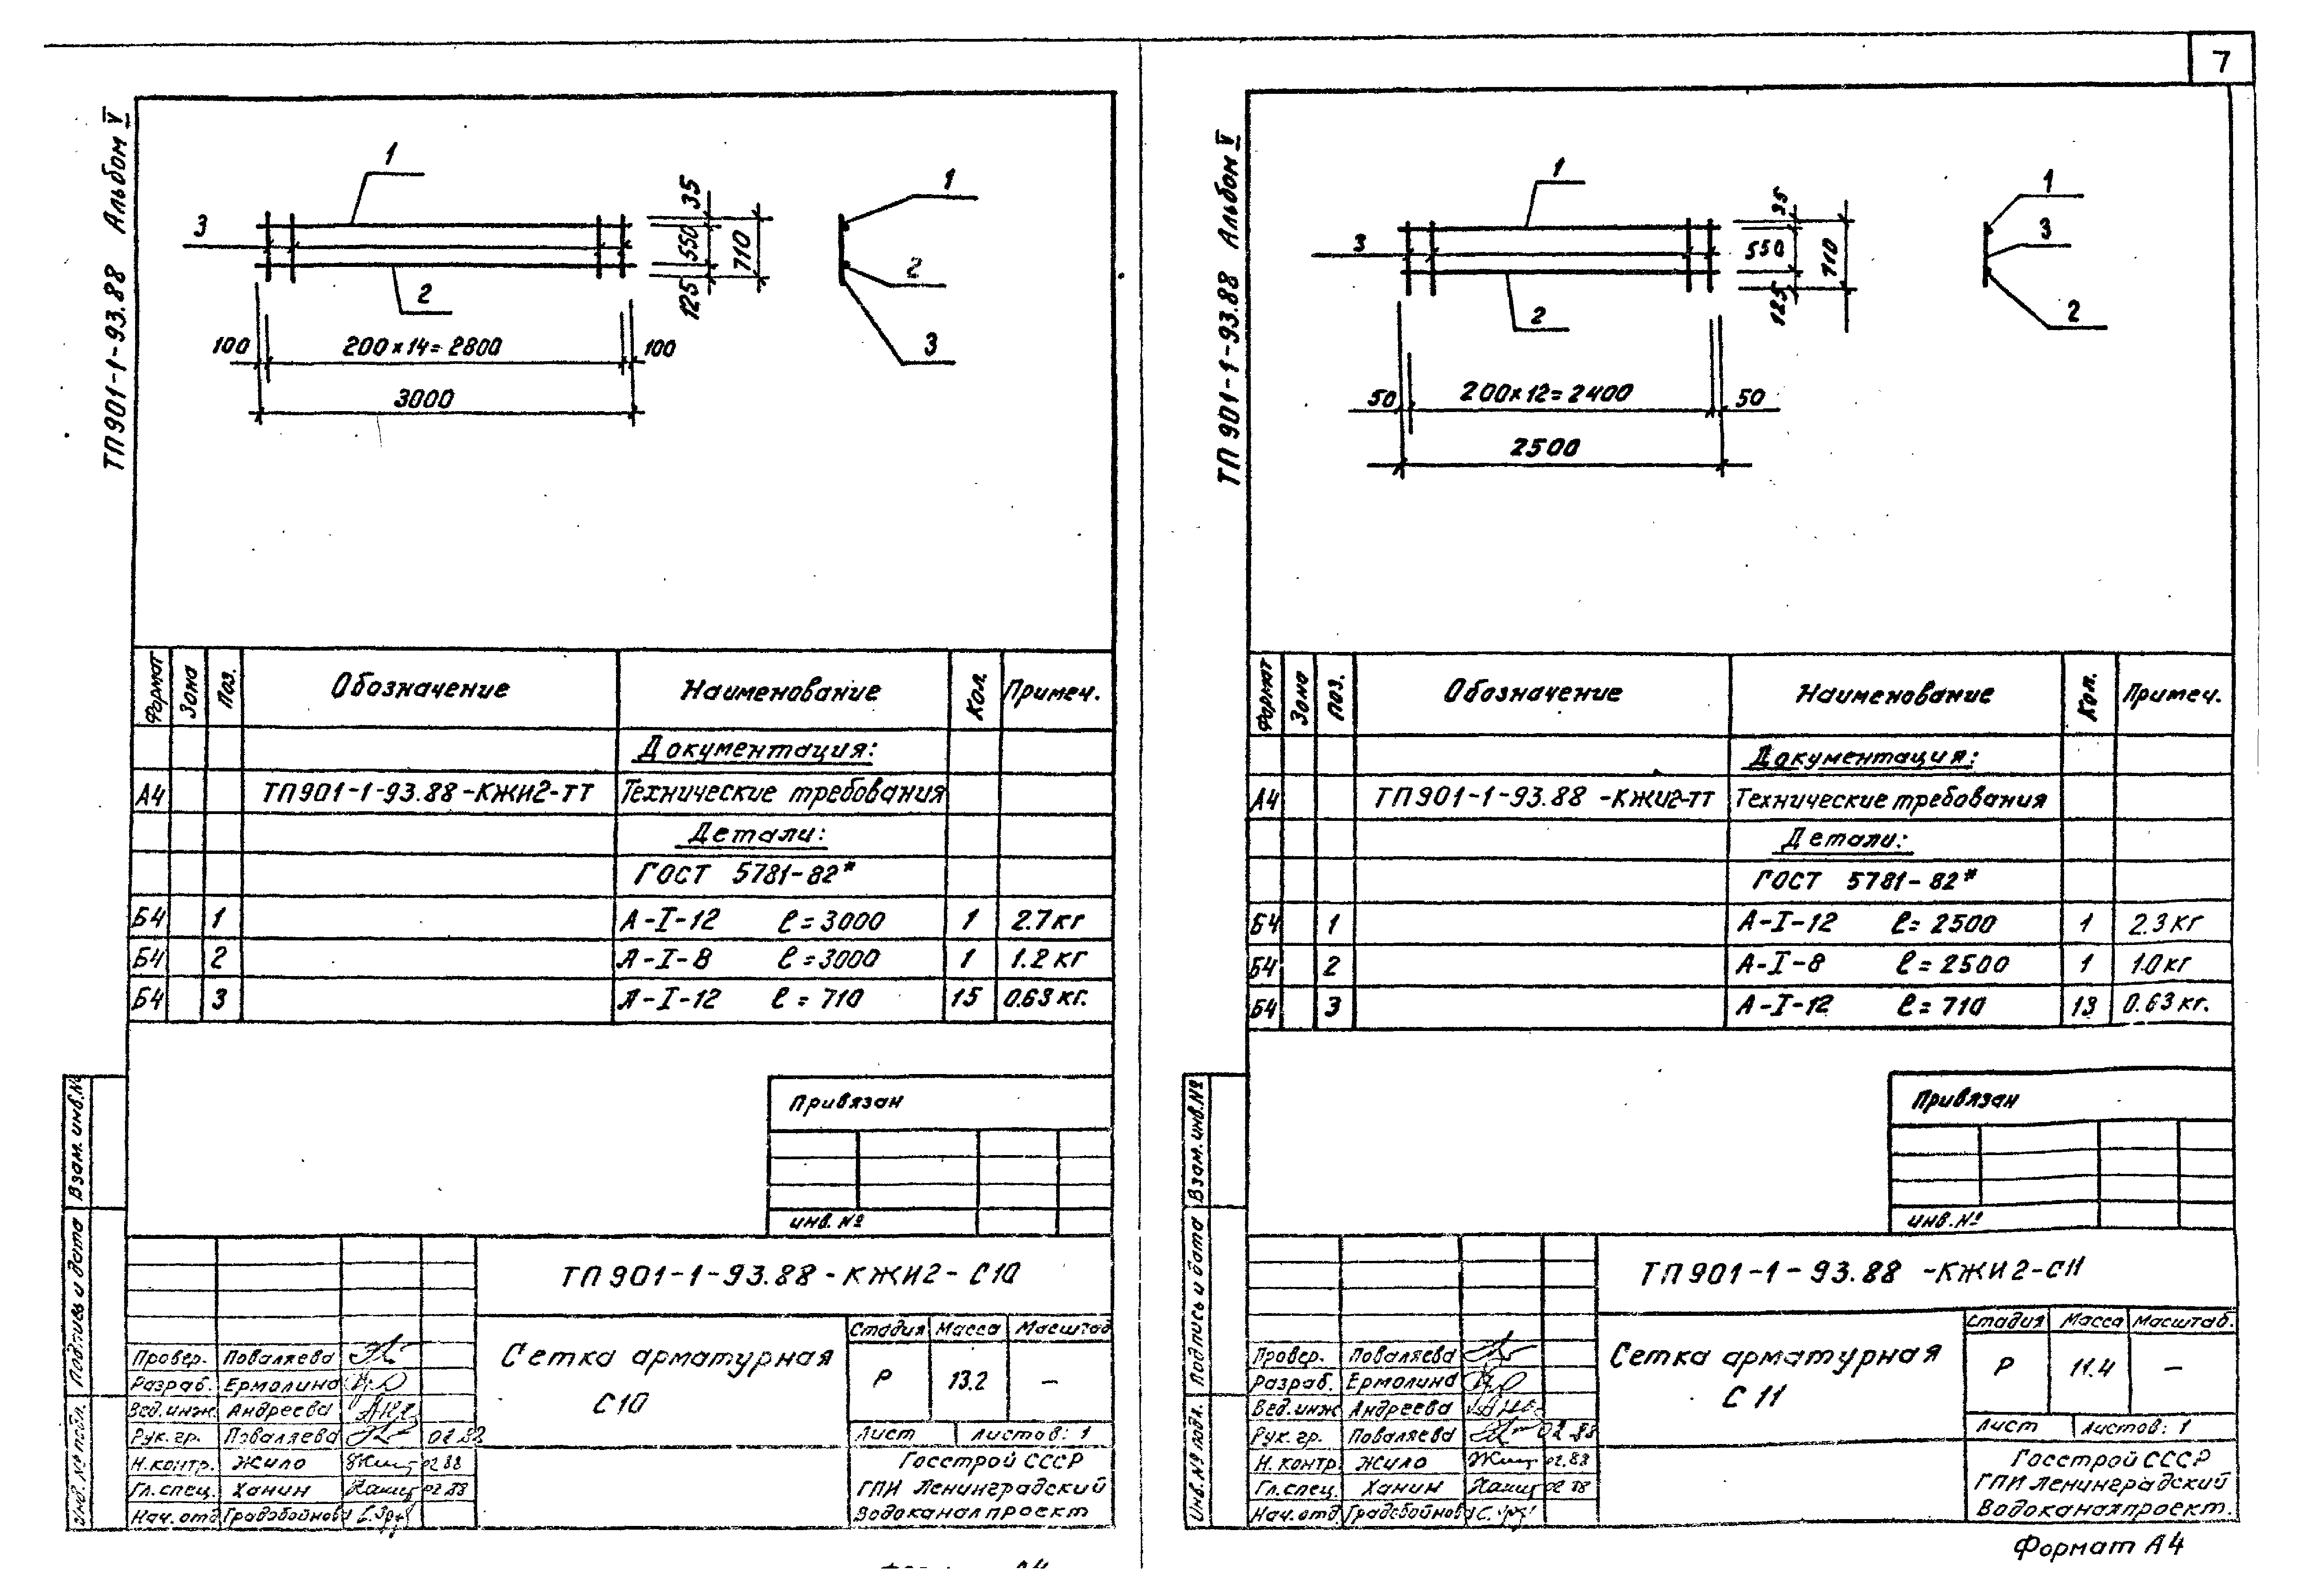 7
ТП901-1-93.88 Альбом V
1
3
2
35
550
125
710
1
2
3
100
200×14=2800
100
3000
Формат
Зона
Поз.
Обозначение
Наименование
Кол.
Примеч.
Документация:
А4 ТП901-1-93.88-КЖИ2-ТТ Технические требования
Детали:
ГОСТ 5781-82*
Б4 1 А-I-12 ℓ=3000 1 2.7кг
Б4 2 А-I-8 ℓ=3000 1 1.2 кг
Б4 3 А-I-12 ℓ=710 15 0.63кг.
Привязан
инв. №
Взам. инв.№
Подпись и дата
Инв. № подл.
ТП901-1-93.88-КЖИ2-С10
Сетка арматурная
С10
Стадия Масса Масштаб
Р 13.2 —
Лист Листов: 1
Госстрой СССР
ГПИ Ленинградский
Водоканалпроект
Провер. Поваляева
Разраб. Ермолина
Вед.инж. Андреева
Рук. гр. Поваляева 02.88
Н.контр. Жило 02.88
Гл.спец. Ханин 02.88
Нач.отд Градобойнова
ТП 901-1-93.88 Альбом V
1
3
2
35
550
125
710
1
3
2
50
200×12=2400
50
2500
Формат
Зона
Поз.
Обозначение
Наименование
Кол.
Примеч.
Документация:
А4 ТП901-1-93.88-КЖИ2-ТТ Технические требования
Детали:
ГОСТ 5781-82*
Б4 1 А-I-12 ℓ=2500 1 2.3кг
Б4 2 А-I-8 ℓ=2500 1 1.0кг
Б4 3 А-I-12 ℓ=710 13 0.63кг.
Привязан
инв.№
Взам. инв.№
Подпись и дата
Инв.№ подл.
ТП901-1-93.88-КЖИ2-С11
Сетка арматурная
С 11
Стадия Масса Масштаб.
Р 11.4 —
Лист Листов: 1
Госстрой СССР
ГПИ Ленинградский
Водоканалпроект.
Провер. Поваляева
Разраб. Ермолина
Вед.инж Андреева
Рук. гр. Поваляева 02.88
Н.контр Жило 02.88
Гл.спец. Ханин 02.88
Нач.отд Градобойнова
Формат А4